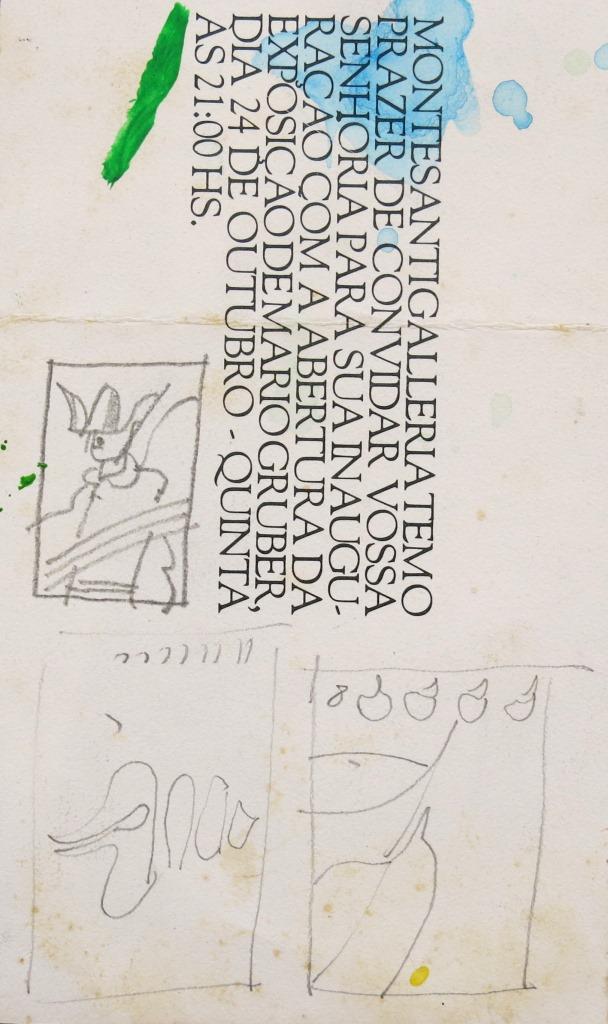 MONTESANTIGALLERIA TEM O
PRAZER DE CONVIDAR VOSSA
SENHORIA PARA SUA INAUGU-
RAÇAO COM A ABERTURA DA
EXPOSIÇAO DE MARIO GRUBER,
DIA 24 DE OUTUBRO - QUINTA
AS 21:00 HS.